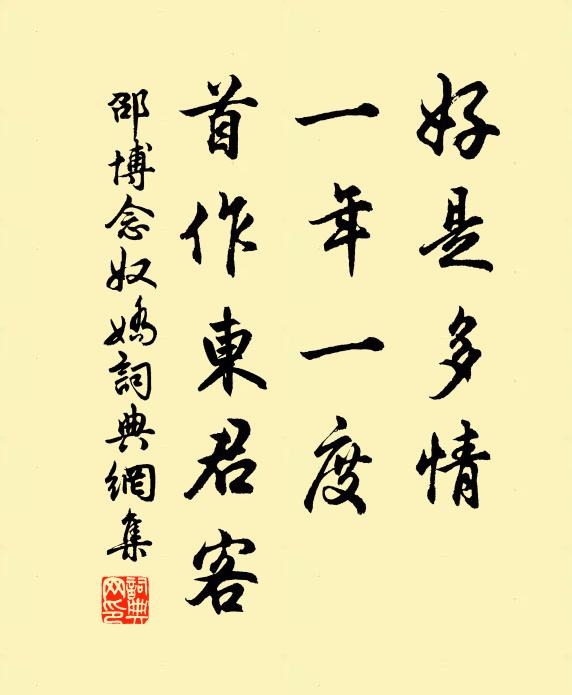 好是多情
一年一度
首作東君客
邵博念奴嬌詞典網集
詞典网印